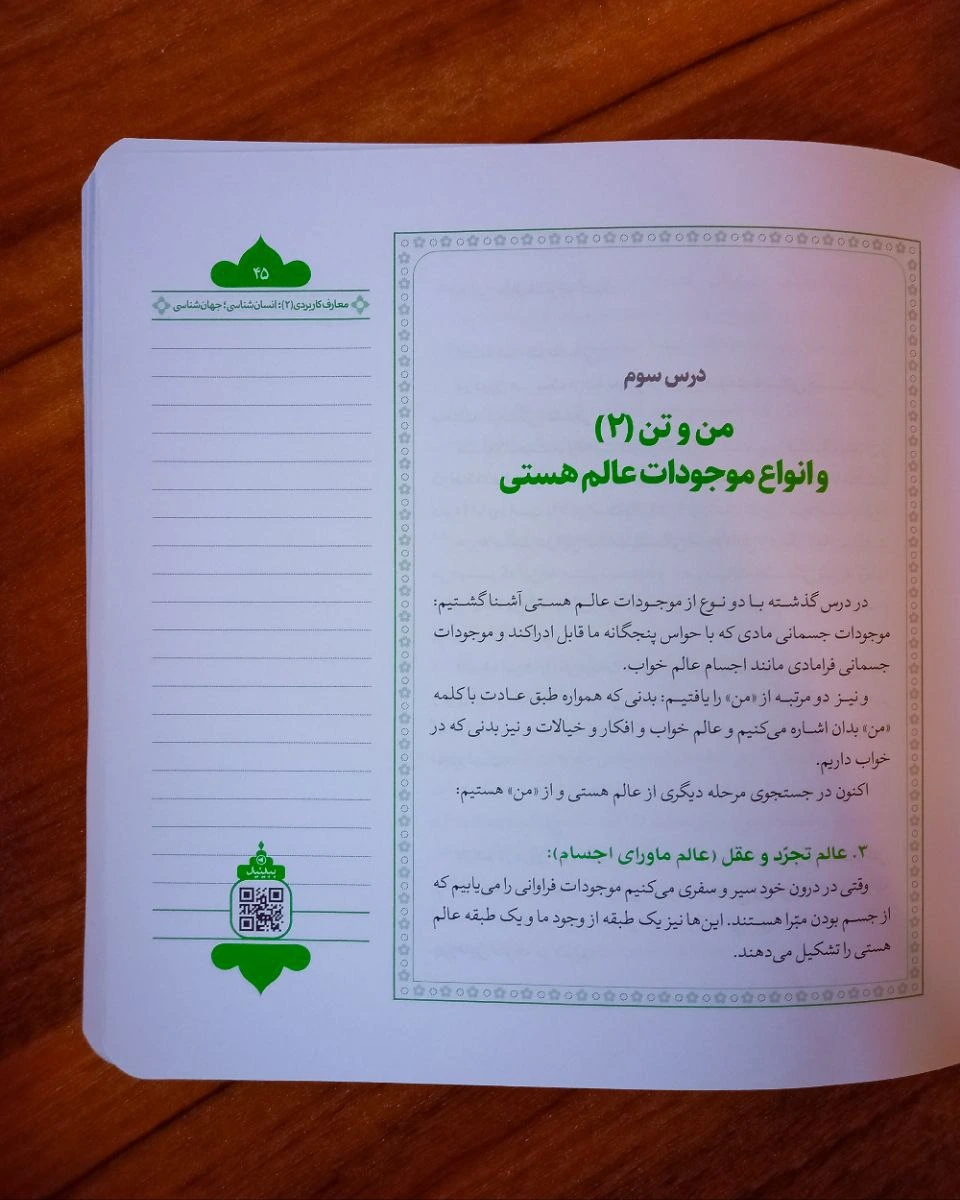 ۴۵
معارف کاربردی (۲): انسان‌شناسی؛ جهان‌شناسی
درس سوم
من و تن (۲)
و انواع موجودات عالم هستی
در درس گذشته با دو نوع از موجودات عالم هستی آشنا گشتیم:
موجودات جسمانی مادی که با حواس پنجگانه ما قابل ادراکند و موجودات
جسمانی فرامادی مانند اجسام عالم خواب.
و نیز دو مرتبه از «من» را یافتیم: بدنی که همواره طبق عادت با کلمه
«من» بدان اشاره می‌کنیم و عالم خواب و افکار و خیالات و نیز بدنی که در
خواب داریم.
اکنون در جستجوی مرحله دیگری از عالم هستی و از «من» هستیم:
۳. عالم تجرّد و عقل (عالم ماورای اجسام):
وقتی در درون خود سیر و سفری می‌کنیم موجودات فراوانی را می‌یابیم که
از جسم بودن مبّرا هستند. این‌ها نیز یک طبقه از وجود ما و یک طبقه عالم
هستی را تشکیل می‌دهند.
ببینید